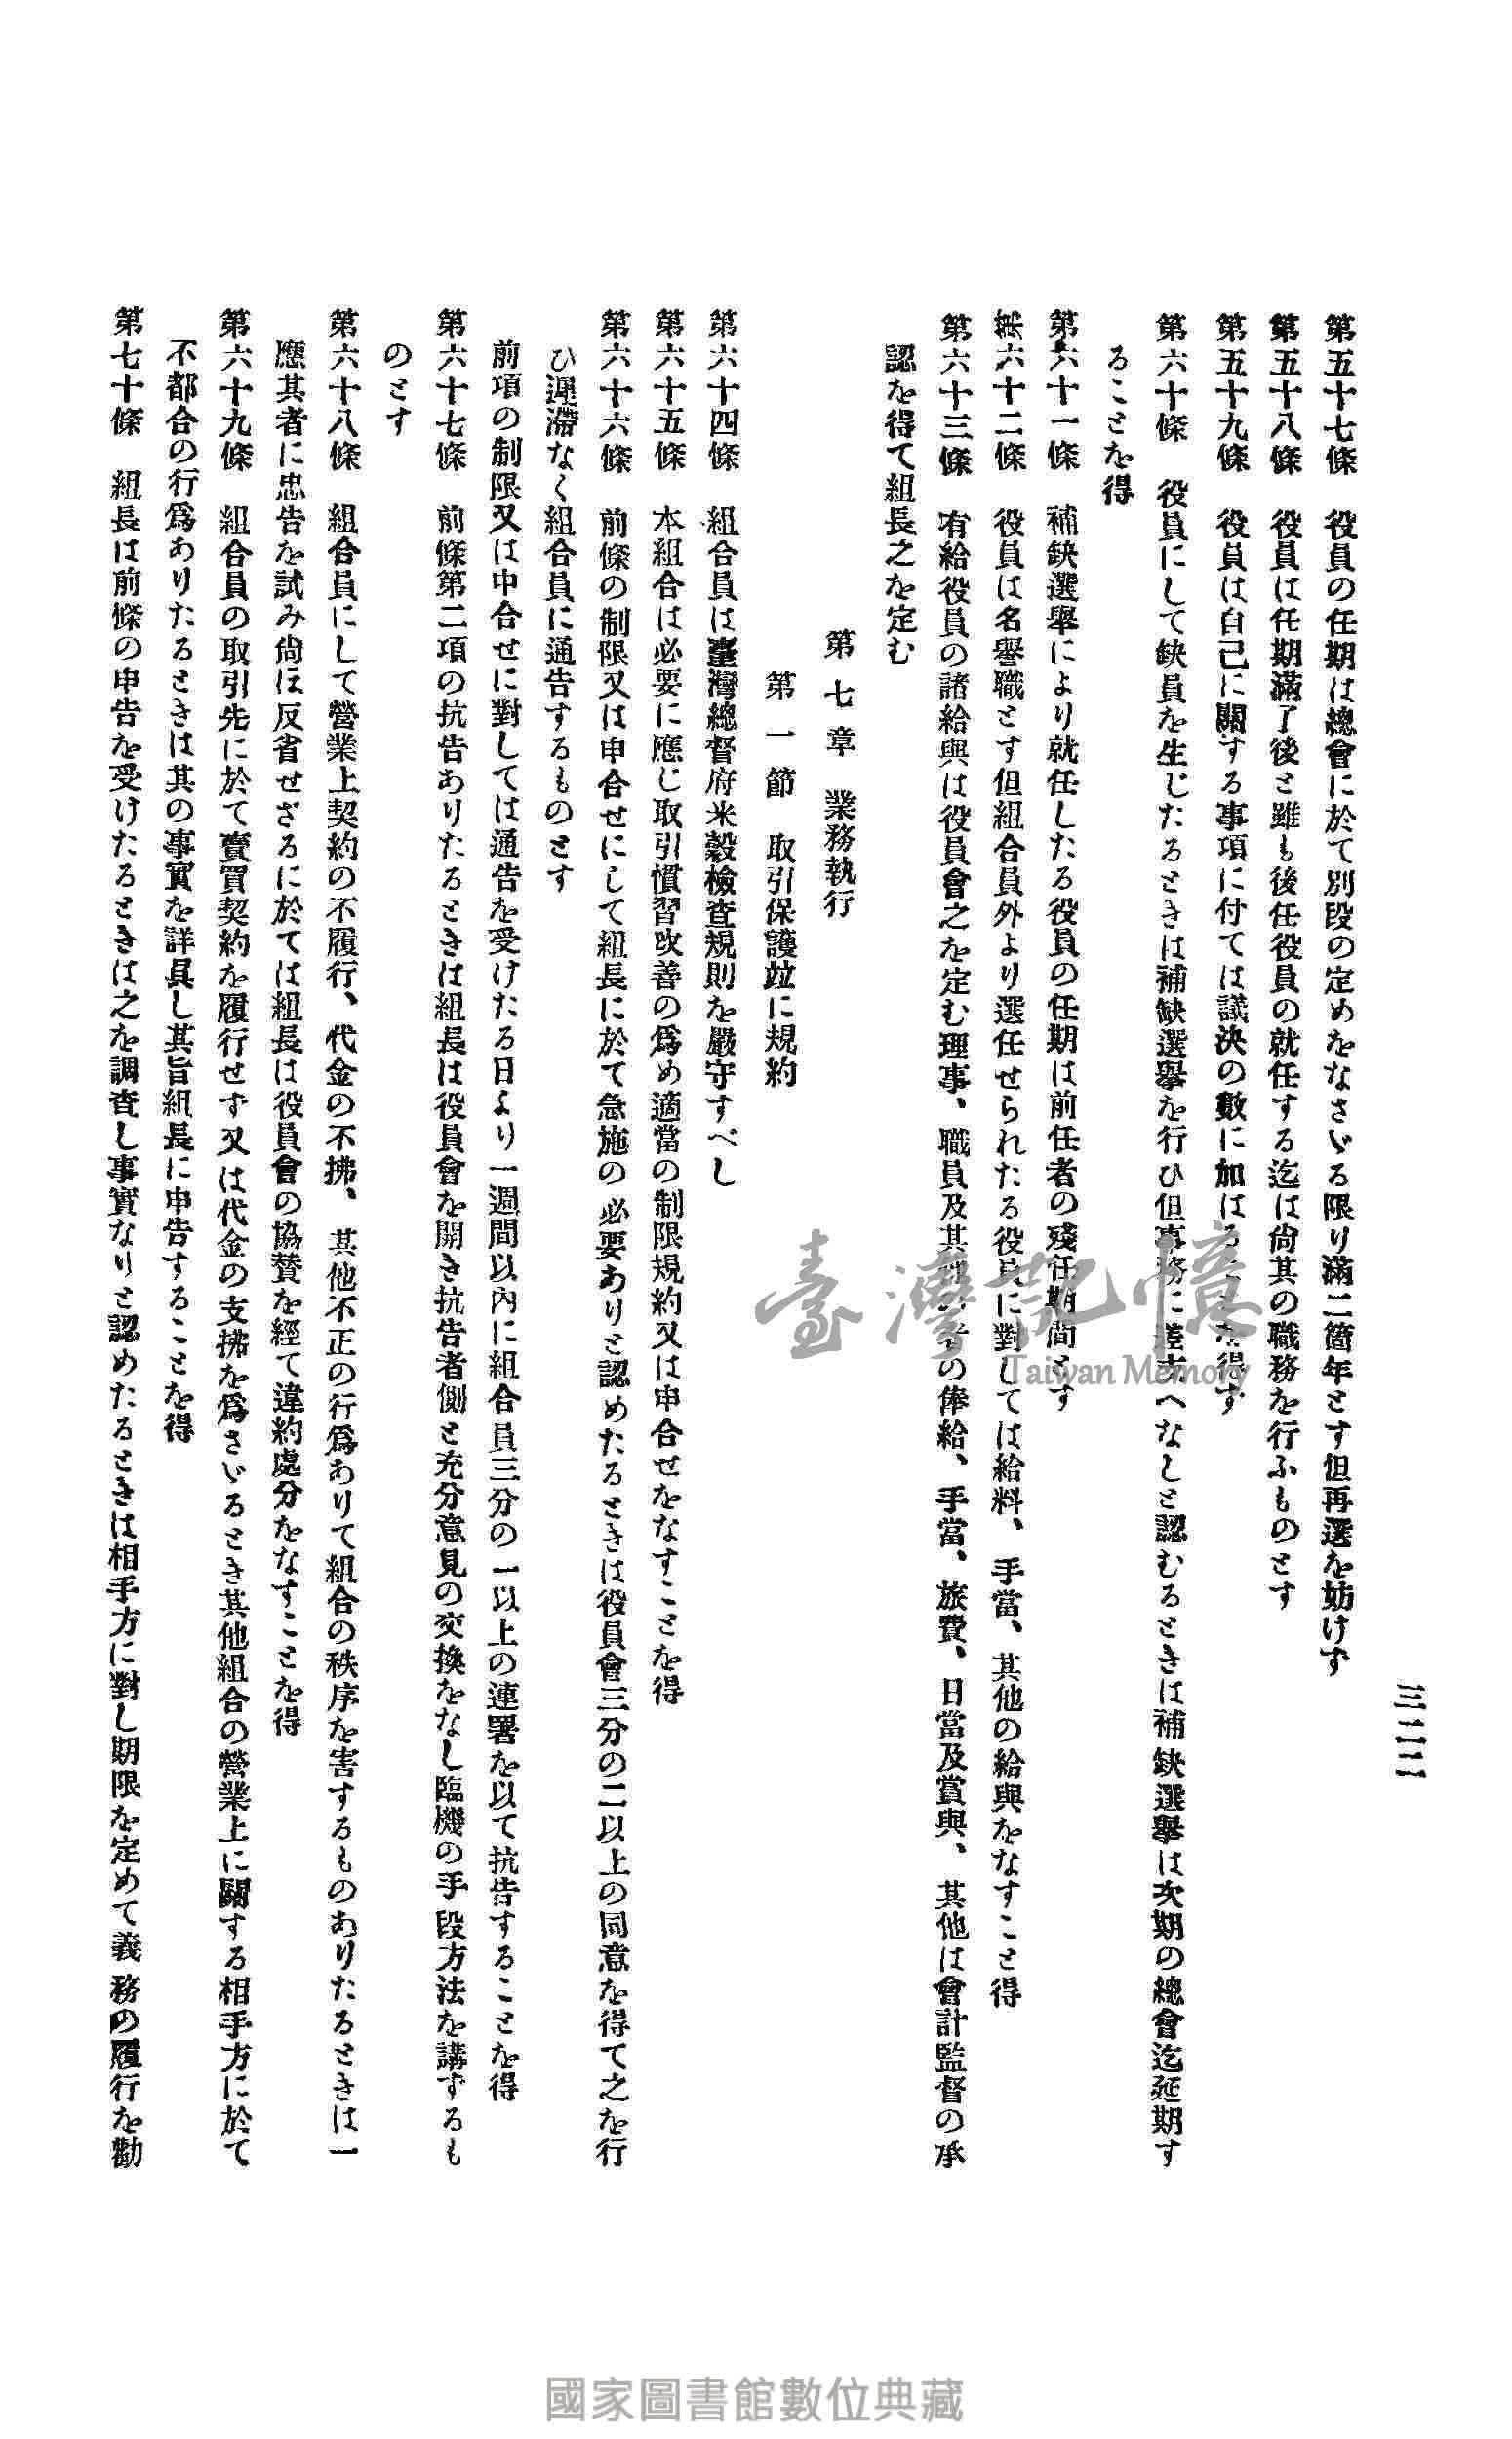 三二二
第五十七條　役員の任期は總會に於て別段の定めをなさゞる限り滿二箇年とす但再選を妨けず
第五十八條　役員は任期滿了後と雖も後任役員の就任する迄は尙其の職務を行ふものとす
第五十九條　役員は自己に關する事項に付ては議決の數に加はることを得ず
第六十條　役員にして缺員を生じたるときは補缺選擧を行ひ但事務に差支へなしと認むるときは補缺選擧は次期の總會迄延期す
ることを得
第六十一條　補缺選擧により就任したる役員の任期は前任者の殘任期間とす
第六十二條　役員は名譽職とす但組合員外より選任せられたる役員に對しては給料、手當、其他の給與をなすこと得
第六十三條　有給役員の諸給與は役員會之を定む理事、職員及其他の者の俸給、手當、旅費、日當及賞與、其他は會計監督の承
認を得て組長之を定む
第七章　業務執行
第一節　取引保護竝に規約
第六十四條　組合員は臺灣總督府米穀檢查規則を嚴守すべし
第六十五條　本組合は必要に應じ取引慣習改善の爲め適當の制限規約又は申合せをなすことを得
第六十六條　前條の制限又は申合せにして組長に於て急施の必要ありと認めたるときは役員會三分の二以上の同意を得て之を行
ひ遲滯なく組合員に通告するものとす
前項の制限又は申合せに對しては通告を受けたる日より一週間以內に組合員三分の一以上の連署を以て抗告することを得
第六十七條　前條第二項の抗告ありたるときは組長は役員會を開き抗告者側と充分意見の交換をなし臨機の手段方法を講ずるも
のとす
第六十八條　組合員にして營業上契約の不履行、代金の不拂、其他不正の行爲ありて組合の秩序を害するものありたるときは一
應其者に忠告を試み尙ほ反省せざるに於ては組長は役員會の協贊を經て違約處分をなすことを得
第六十九條　組合員の取引先に於て賣買契約を履行せず又は代金の支拂を爲さゞるとき其他組合の營業上に關する相手方に於て
不都合の行爲ありたるときは其の事實を詳具し其旨組長に申告することを得
第七十條　組長は前條の申告を受けたるときは之を調查し事實なりと認めたるときは相手方に對し期限を定めて義務の履行を勸
臺灣記憶
Taiwan Memory
國家圖書館數位典藏